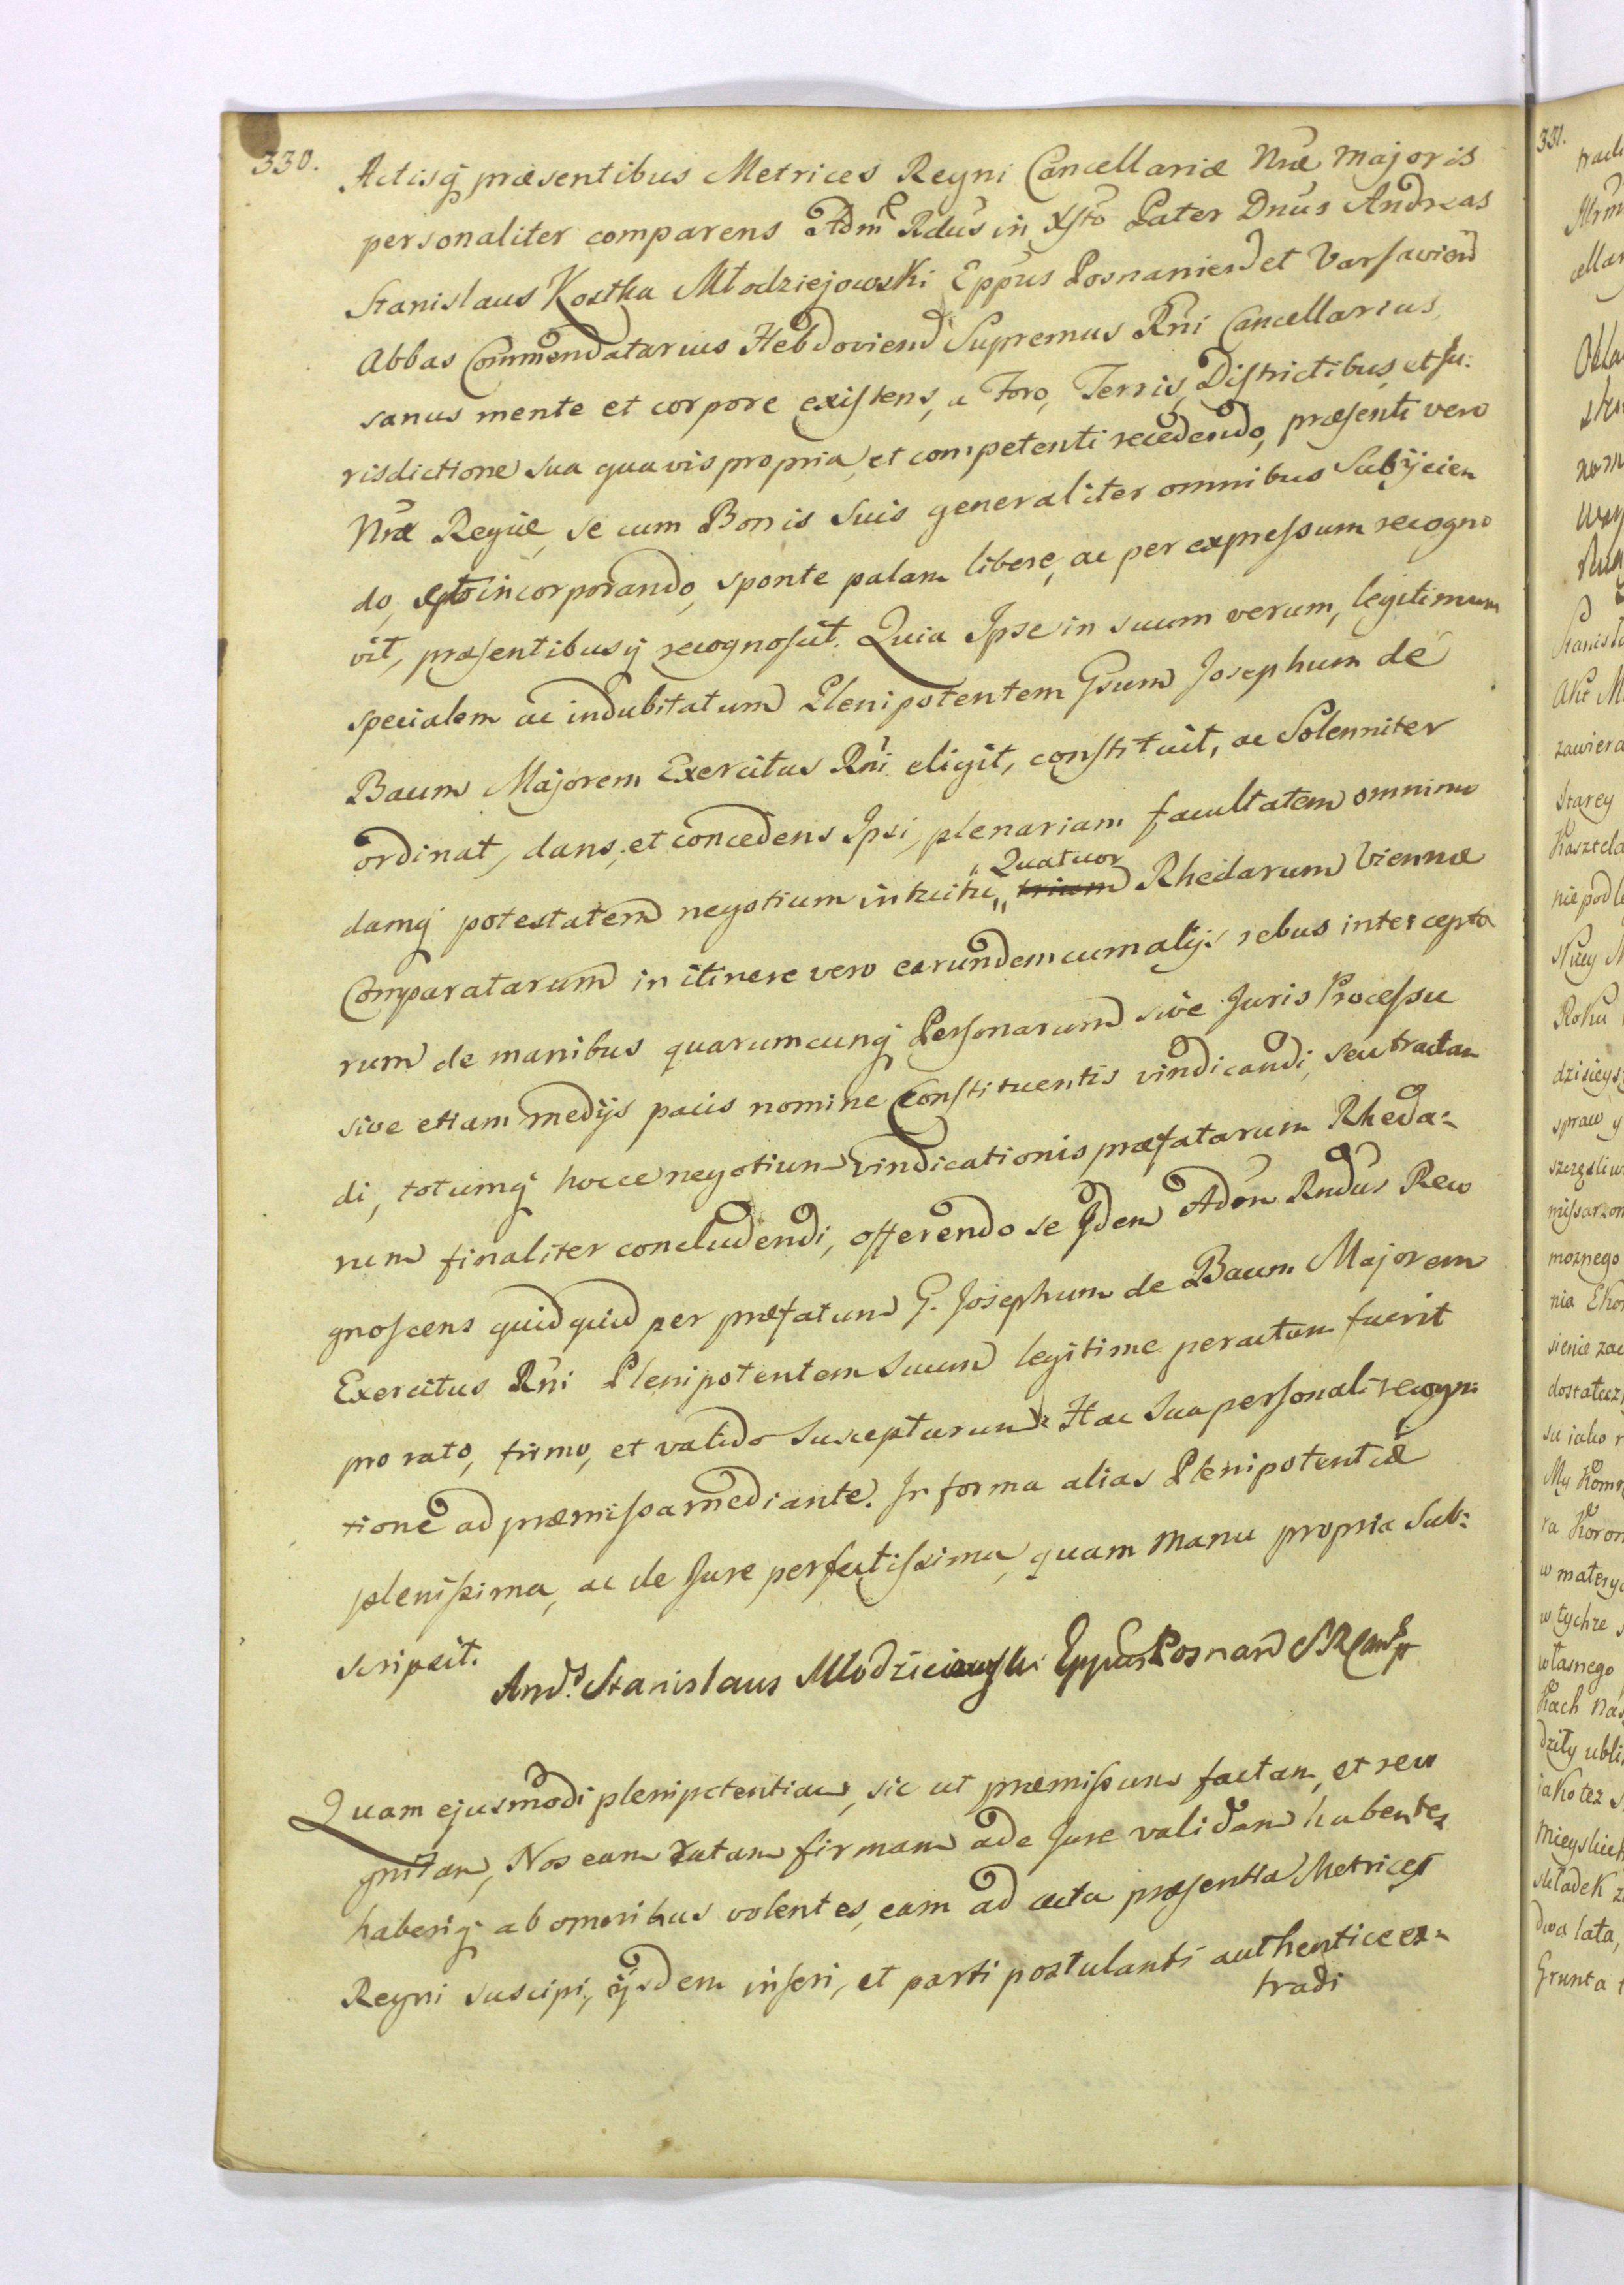 330.
Actisq̃ præsentibus Metrices Regni Cancellariæ Nr̃æ Majoris
personaliter comparens Adm̃ Rdus in Xsto Pater Dnus Andreas
Stanislaus Kostka Młodziejowski Eppus Posnanien et Varsavien
Abbas Commendatarius Hebdovien Supremus Rni Cancellarius
sanus mente et corpore existens, a Foro, Terris, Districtibus, et Ju:
risdictione sua quavis propria, et competenti recedendo, præsenti vero
Nræ Regiæ, se cum Bonis Suis generaliter omnibus Subijcien
do, et incorporando, sponte palam libere, ac per expressum recogno
vit, præsentibusq̃ recognoscit. Quia Ipse in suum verum, legitimum
specialem ac indubitatum Plenipotentem Gsum Josephum de
Baum Majorem Exercitus Rni eligit, constituit, ac Solenniter
ordinat, dans, et concedens Ipsi, plenariam facultatem omnimo
damq̃ potestatem negotium intuitu, „Quatuor„ trium Rhedarum Viennæ
Comparatarum in itinere vero earundem cum alijs rebus intercepta
rum de manibus quarumcunq̃ Personarum sive Juris Processu
sive etiam medijs pacis nomine Constituentis vindicandi, seu tractan
di, totumq̃ hocce negotium vindicationis præfatarum Rheda:
rum finaliter concludendi, offerendo se Idem Adm Rndus Reco
gnoscens quidquid per præfatum G. Josephum de Baum Majorem
Exercitus Rni Plenipotentem Suum legitime peractum fuerit
pro rato, firmo, et valido Suscepturum. Hac Sua personali recogni
tione ad præmissa mediante. In forma alias Plenipotentiæ
plenissima, ac de Jure perfectissima, quam Manu propria Sub:
scripsit.
Ands. Stanislaus Młodzieiowski Eppus Posnan S R Canr
Quam ejusmodi plenipotentiam, sic ut præmissum factam, et reco
gnitam, Nos eam ratam firmam ac de Jure validam habentes
haberiq̃ ab omnibus volentes, eam ad acta præsentia Metrices
Regni suscipi, ijsdem inseri, et parti postulanti authentice ex:
tradi
331.
Stanisła
zawiera
Starey
Kasztela
nie podle
Roku
dzisieys
spraw y
szczęśliw
missarzom
moznego
nia Eko
sienie zac
dostatecz
su iako r
My Komi
ra Koron
w materyi
w tychze
własnego
kach nas
dziły ubli
iako tez s
Mieyskich
składek z
dwa lata,
Grunta